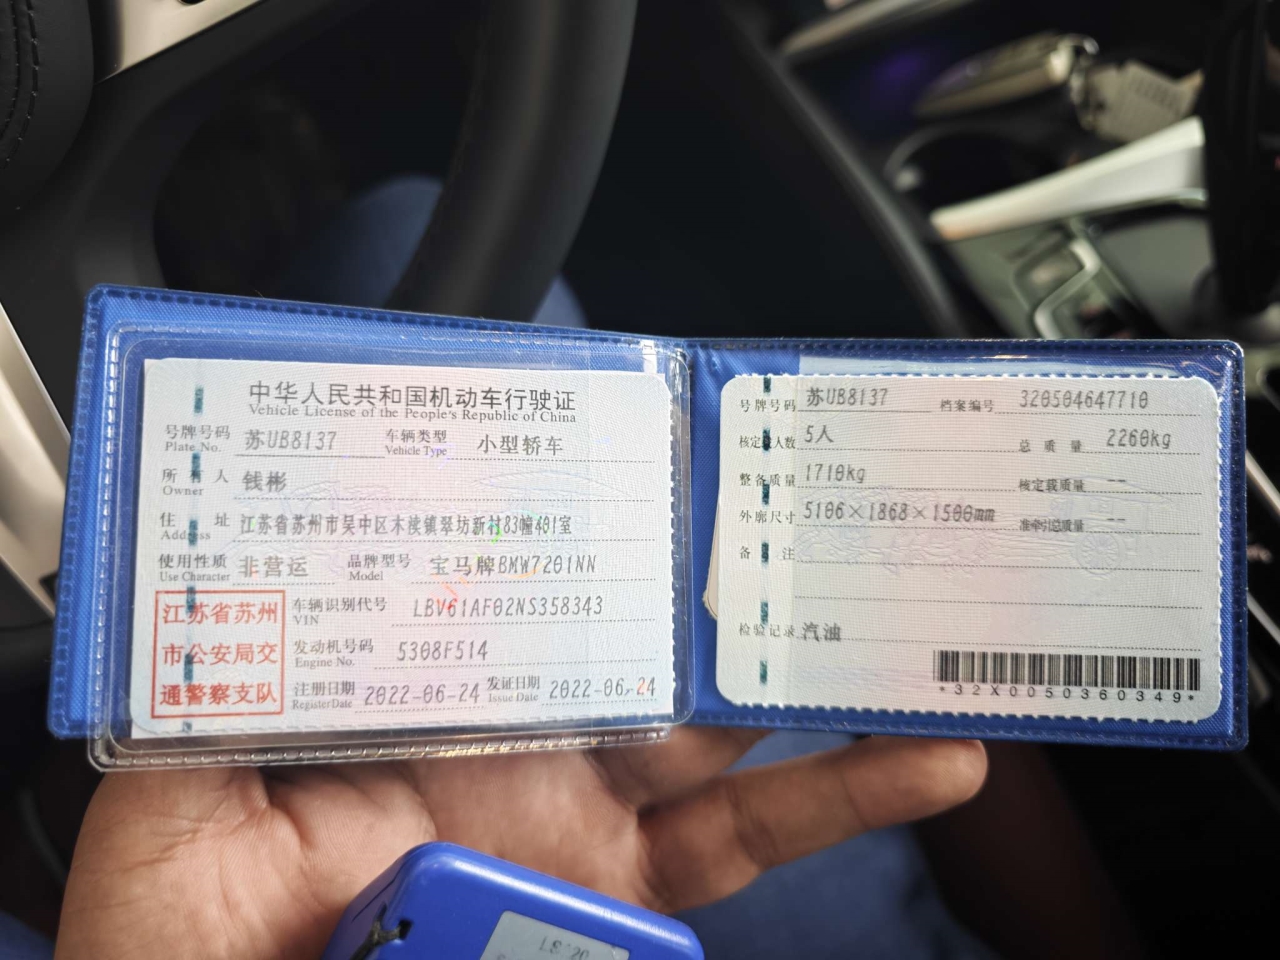 中华人民共和国机动车行驶证
Vehicle License of the People's Republic of China
号牌号码 苏UB8137 车辆类型 小型轿车
Plate No. Vehicle Type
所有人 钱彬
Owner
住址 江苏省苏州市吴中区木渎镇翠坊新村83幢401室
Address
使用性质 非营运 品牌型号 宝马牌BMW7201NN
Use Character Model
江苏省苏州
市公安局交
通警察支队
车辆识别代号 LBV61AF02NS358343
VIN
发动机号码 5308F514
Engine No.
注册日期 2022-06-24 发证日期 2022-06-24
Register Date Issue Date
号牌号码 苏UB8137 档案编号 320504647710
核定载人数 5人 总质量 2260kg
整备质量 1710kg 核定载质量 --
外廓尺寸 5106×1868×1500mm 准牵引总质量 --
备注
检验记录 汽油
*32X0050360349*